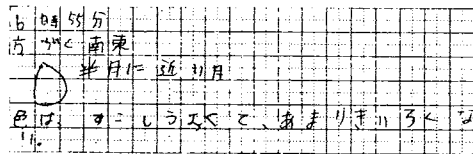 6時55分
方がく南東
半月に近い月
色は、すこしうすくて、あまりきいろくな
い。